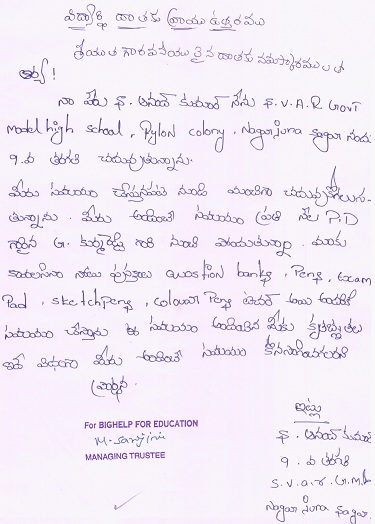 విద్యార్థి దాతకు వ్రాయు ఉత్తరము
శ్రీయుత గౌరవనీయులైన దాతకు నమస్కారములతో
ఆర్య!
నా పేరు కుమార్ నేను S.V.A.R Govt
Model high school, Pylon colony, Nagarjuna sagar నందు
9.వ తరగతి చదువుతున్నాను.
మీరు సహాయం చేస్తున్నప్పటి నుండి మంచిగా చదువుకోగలుగు-
తున్నాను. మీరు అందించే సహాయం ప్రతి నెల P.D
గారైన G. గారి నుండి పొందుతున్నాం. మాకు
కావలసిన నోటు పుస్తకాలు question banks, Pens, Exam
Pad, sketchpens, colour Pens టీచర్ అందరికీ
సహాయం చేస్తారు ఈ సహాయం అందించిన మీకు కృతజ్ఞతలు
ఇదే విధంగా మీరు అందించే సహాయం కొనసాగించగలరని
ప్రార్థన.
For BIGHELP FOR EDUCATION
M. Sanjini
MANAGING TRUSTEE
ఇట్లు
కుమార్
9.వ తరగతి
S.V.A.R.G.M.H
నాగార్జున సాగర్.